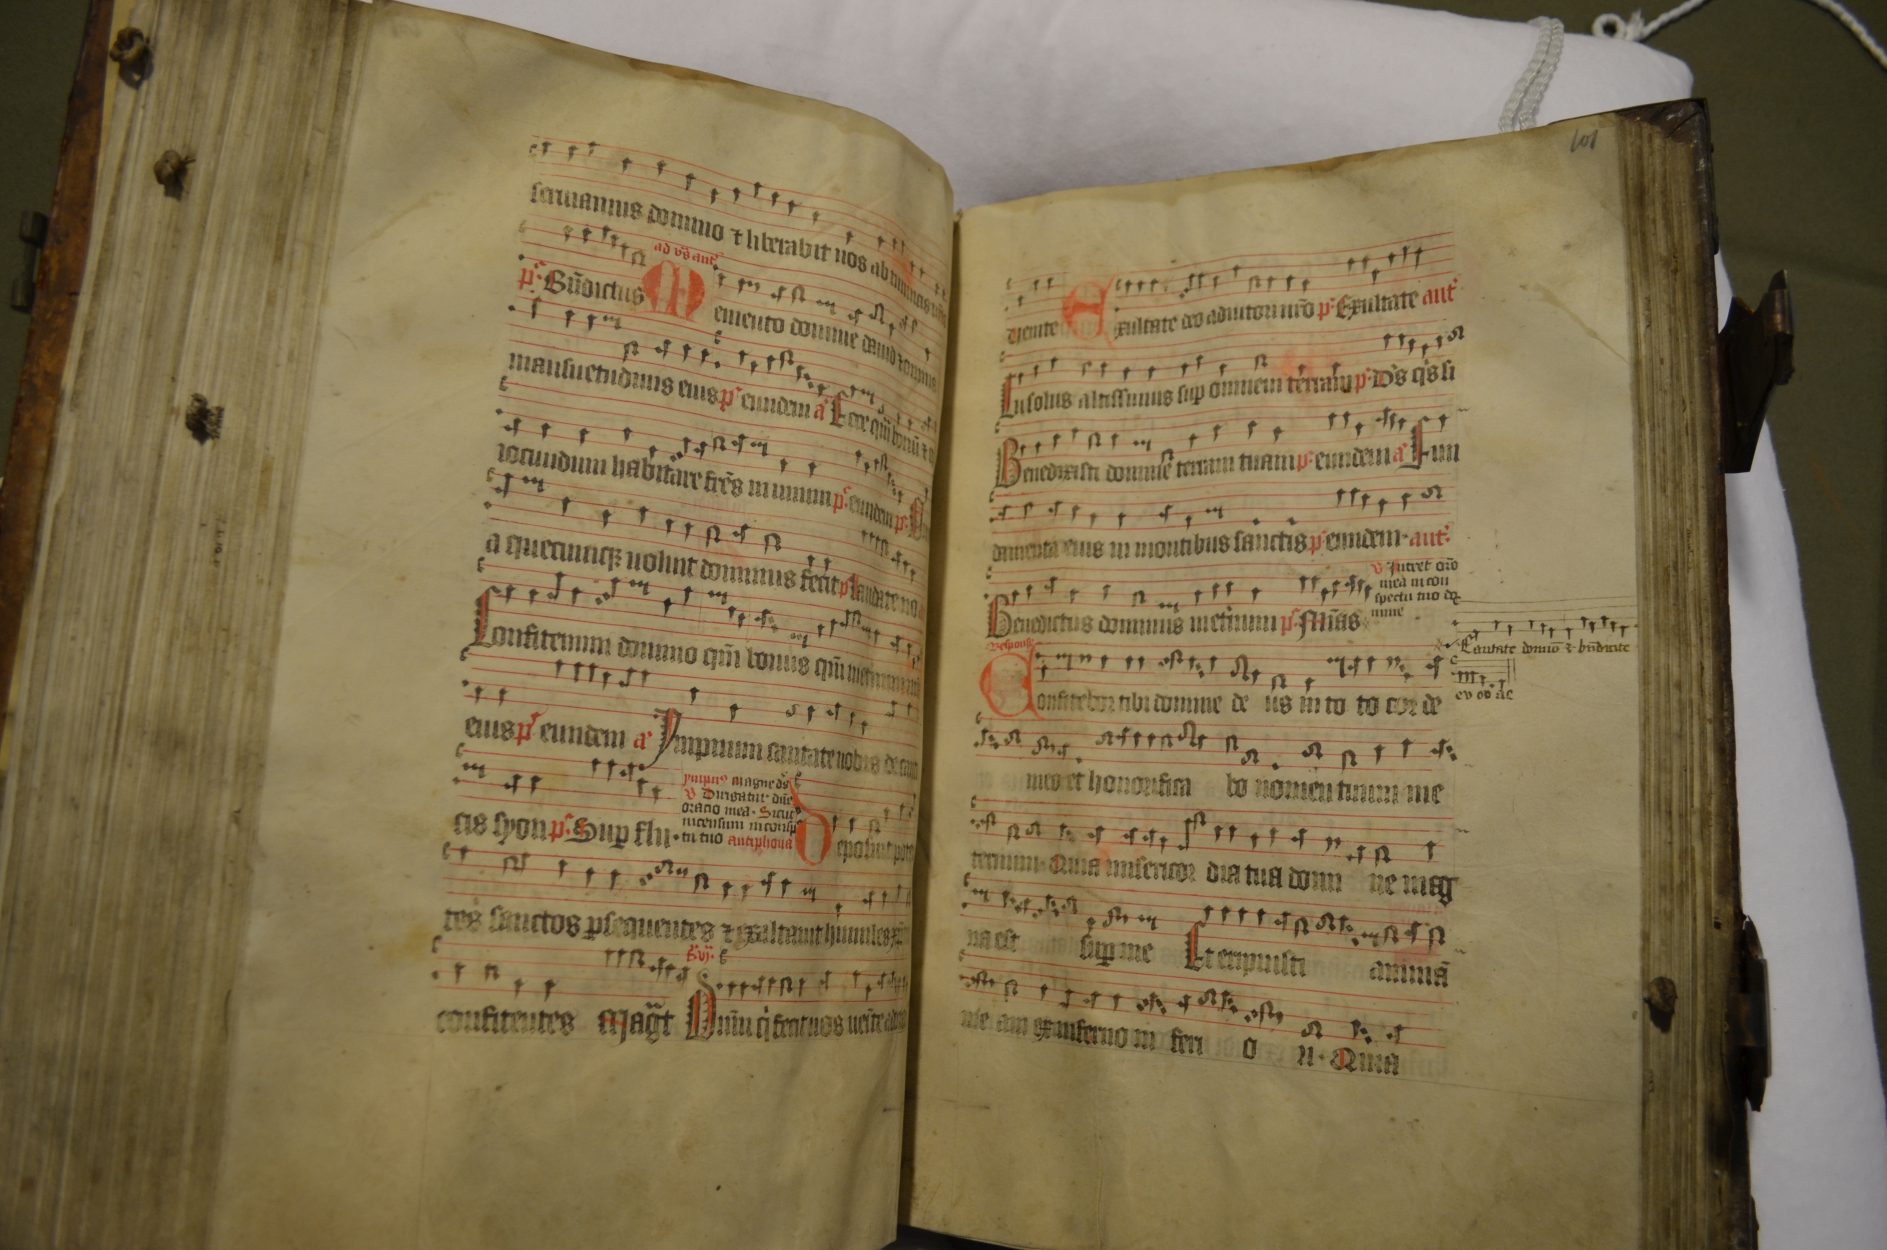 seruiamus domino et liberabit nos ab inimicis nris
ad vs ant
ps Bndictus Memento domine dauid et omnis
mansuetudinis eius ps eundem a Ecce qm bonu et
iocundum habitare frēs in unum ps eundem ps
a quecunqȝ uoluit dominus fecit ps laudate no
Confitemini domino qm bonus qm in eternum
eius ps eundem a Ympnum cantate nobis de canti
cis syon ps Sup flu
ympnus magne ds
v Dirigatur dne
oracio mea Sicut
incensum in consp
tu tuo antiphona
Deposuit poten
tes sanctos psequentes et exaltauit humiles
confitentes Magt Dnm q fecit nos uenite
101
Exultate deo adiutori nro ps Exultate ant
Tu solus altissimus sup omnem terram ps Ds qs si
Benedixisti domine terram tuam ps eundem a Fun
damenta eius in montibus sanctis ps eundem ant
v Intret oro
mea in con
spectu tuo do
mine
Benedictus dominus in eternum ps
Cantate domino et bndicite
Confitebor tibi domine de us in to to cor de
ev ov ae
meo et honorifica bo nomen tuum in e
ternum Quia misericor dia tua domi ne mag
na est sup me Et eripuisti animā
me am ex inferno in feri o ri Quia